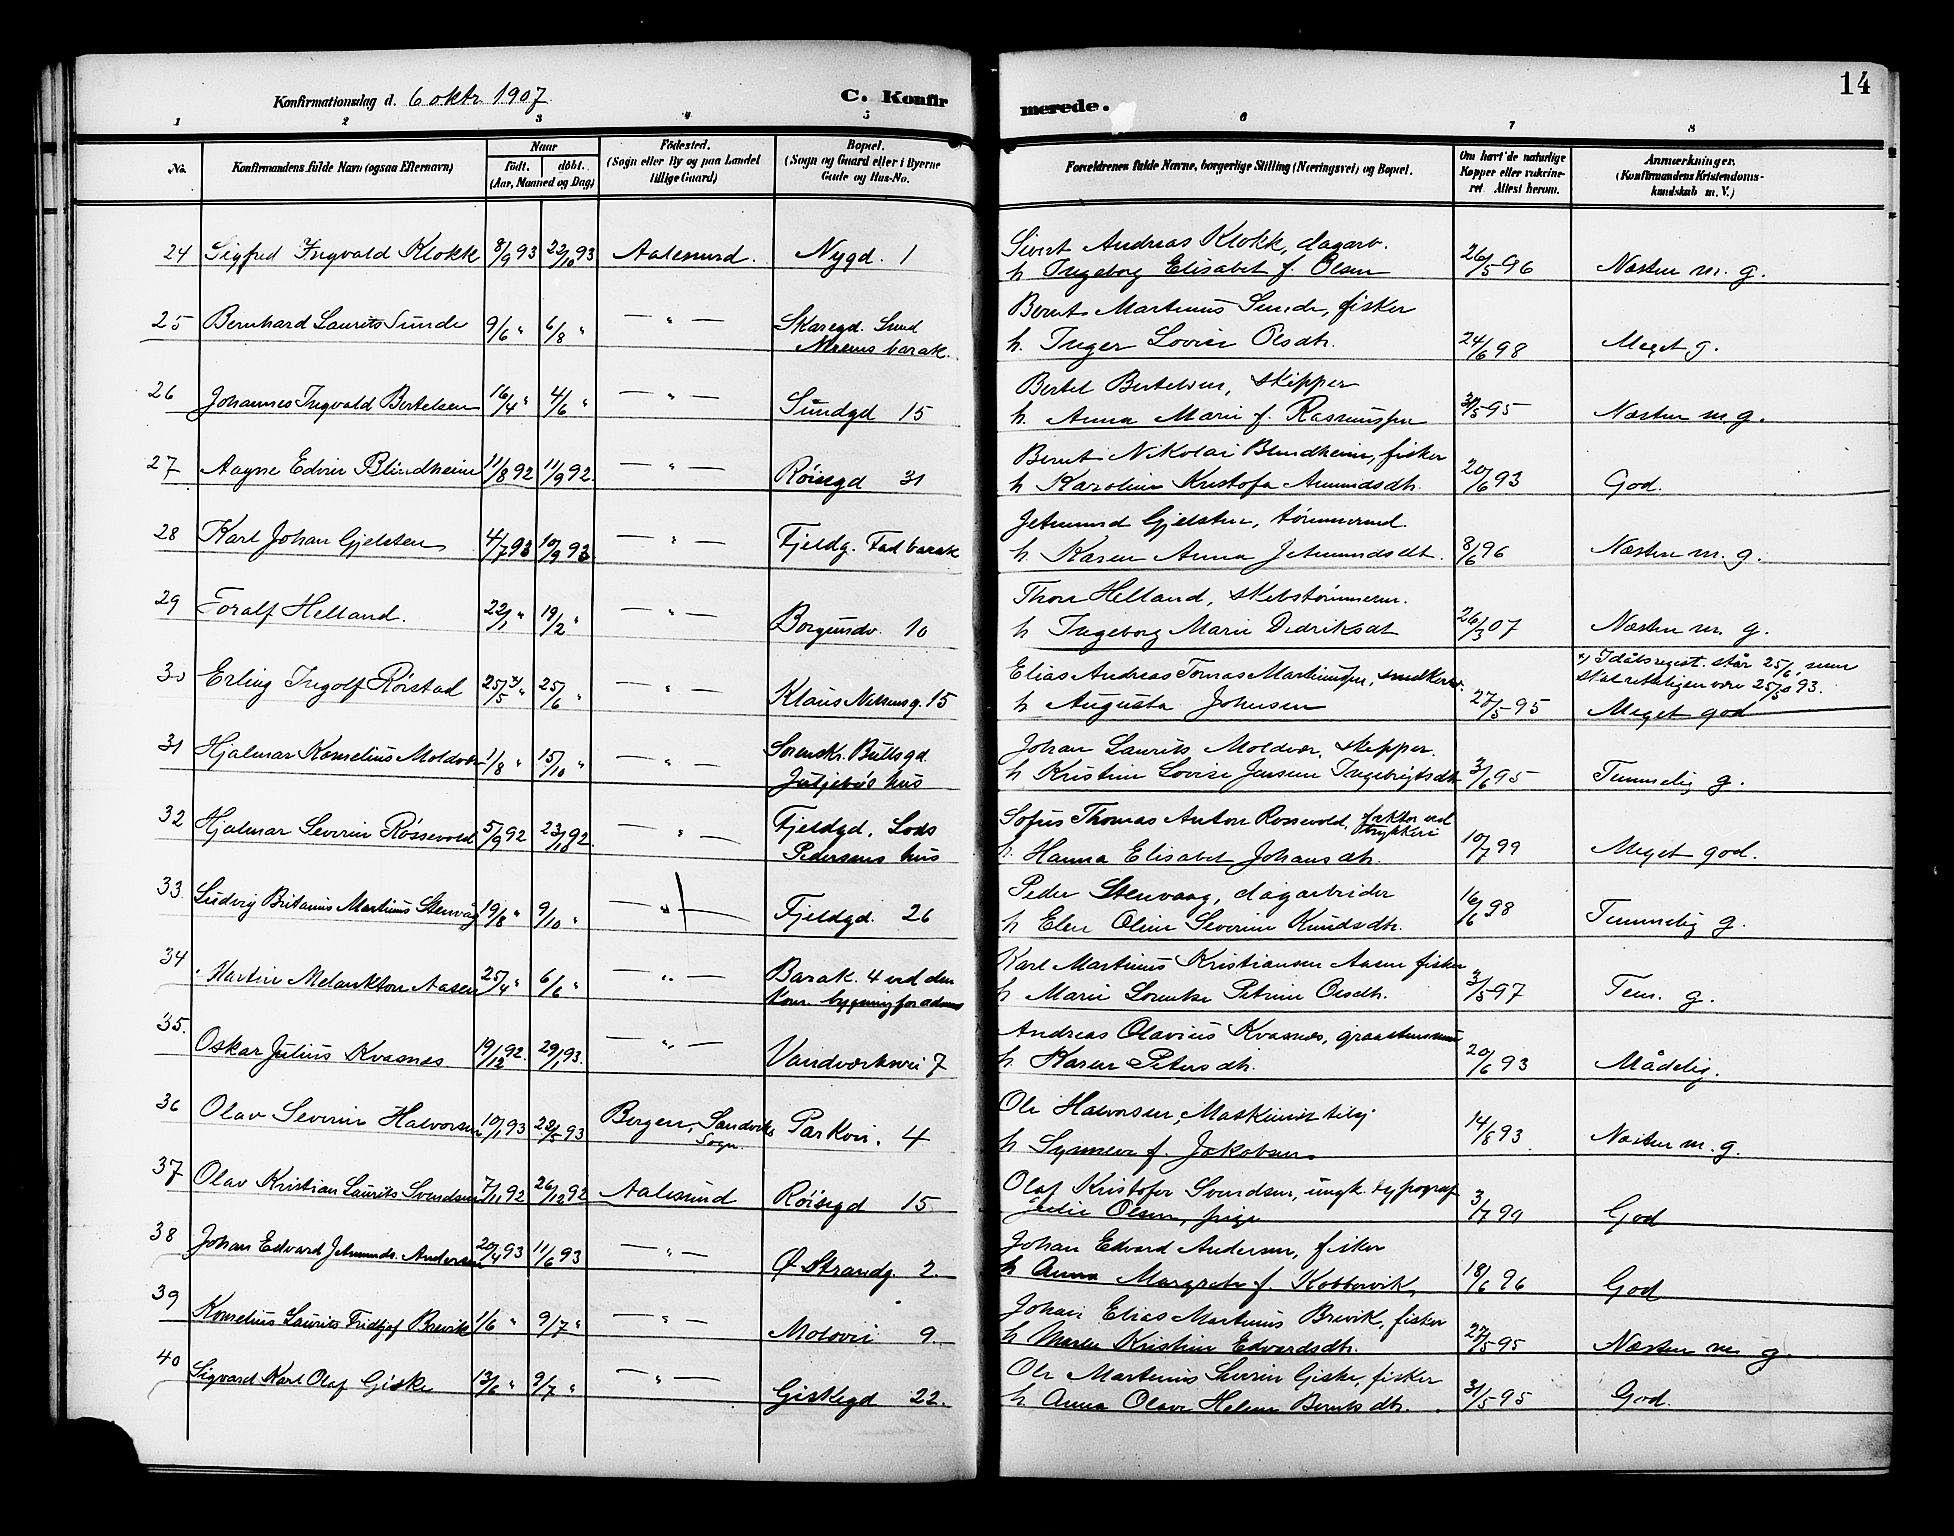 Konfirmationsdag d. 6 oktr. 1907
C. Konfirmerede.
14
1 2 3 4 5 6 7 8
No.
Konfirmandens fulde Navn (ogsaa Efternavn)
Naar
født. døbt.
(Aar, Maaned og Dag)
Fødested.
(Sogn eller By og paa Landet
tillige Gaard)
Bopæl.
(Sogn og Gaard eller i Byerne
Gade og Hus-No.
Forældrenes fulde Navne, borgerlige Stilling (Næringsvei) og Bopæl.
Om havt de naturlige
Kopper eller vakcine-
ret. Attest herom.
Anmærkninger.
(Konfirmandens Kristendoms-
kundskab m. V.)
24 Sigfred Ingvald Klokk 8/9 93 22/10 93 Aalesund. Nygd. 1
Sivert Andreas Klokk, dagarb.
h Ingeborg Elisabet f. Olsen 26/5 96 Næsten m. g.
25 Bernhard Laurits Sunde 9/6 " 6/8 " — " — Skaregd. Sund
Mørens barak.
Bernt Martinus Sunde, fisker
h. Inger Lovise Olsdtr. 24/6 98 Meget g.
26 Johannes Ingvald Bertelsen 16/4 " 4/6 " — " — Sundgd 15
Bertel Bertelsen, skipper
h. Anna Marie f. Rasmussen 31/5 95 Næsten m. g.
27 Aagne Edvin Blindheim 11/8 92 11/9 92. — " — Røisegd 31
Bernt Nikolai Blindheim, fisker
h Karoline Kristofa Amundsdtr. 20/6 93 God.
28 Karl Johan Gjelsten 4/7 93 10/9 93 — " — Fjeldg. Fad barak
Jetmund Gjelsten, tømmermd.
h Karen Anna Jetmundsdt. 8/6 96 Næsten m. g.
29 Toralf Helland. 22/1 " 19/2 " — " — Borgundv. 10
Thore Helland, skibstømmerm.
h Ingeborg Marie Didriksdt 26/3 07 Næsten m. g.
30 Erling Ingolf Rørstad 25/5 x) " 25/6 " — " — Klaus Nilsensg. 15
Elias Andreas Tomas Martinussen, snedkerm.
h Augusta Johnsen 27/5 95
x) I dåbsregist. står 25/6, men
skal rettelig være 25/5 93.
Meget god
31 Hjalmar Kornelius Moldvær 1/8 " 15/10 " — " — Sorenskr. Bullsgd
Jutjebøs hus
Johan Laurits Moldvær, skipper.
h Kristine Lovise Jensen Ingebrigtsdtr 3/6 95 Temmelig g.
32 Hjalmar Severin Røssevold 5/9 92 23/10 92. — " — Fjeldgd. Lods
Pedersens hus
Sofus Thomas Anton Rossevold, faktor ved
trykkeri
h. Hanna Elisabet Johansdtr. 10/7 99 Meget god.
33 Ludvig Britanus Martinus Stenvåg 19/8 " 9/10 " — " — Fjeldgd. 26
Peder Stenvaag, dagarbeider
h Elen Oline Severine Knudsdtr. 16/6 98 Temmelig g.
34 Martin Melankton Aasen 25/4 " 6/6 " — " — Barak. 4 ved den
kom. bygning for adms
Karl Martinus Kristiansen Aasen fisker
h Marie Lorentse Petrine Olsdtr. 3/5 97 Tem. g.
35. Oskar Julius Kvasnes 19/12 92. 29/1 93. — " — Vandværksvei 7
Andreas Olavius Kvasnes, graastensmur
h. Karen Petersdtr. 20/6 93 Mådelig.
36 Olav Severin Halvorsen 10/1 93 22/5 93 Bergen, Sandviks
Sogn. Parkvei. 4
Ole Halvorsen, Maskinist tilsj
h Synneva f. Jakobsen 14/8 93 Næsten m. g.
37 Olav Kristian Laurits Svendsen 7/11 92 26/12 92 Aalesund Røisegd 15
Olaf Kristofer Svendsen, ungk. typograf
Julie Olsen, pige 3/7 99 God
38 Johan Edvard Jetmunds. Andersen 20/4 93 11/6 93 — " — Ø. Strandg. 2.
Johan Edvard Andersen, fisker
h Anna Margrete f. Kobbervik 18/6 96 God
39 Kornelius Laurits Fridtjof Brevik 1/6 " 9/7 " — " — Molovei 9.
Johan Elias Martinus Brevik, fisker
h Marte Kristine Edvardsdtr. 27/5 95 Næsten m g.
40 Sigvard Karl Olaf Giske 13/6 " 9/7 " — " — Giskegd 22.
Ole Martinus Severin Giske, fisker
h Anna Olave Helene Berntsdtr. 31/5 95 God.